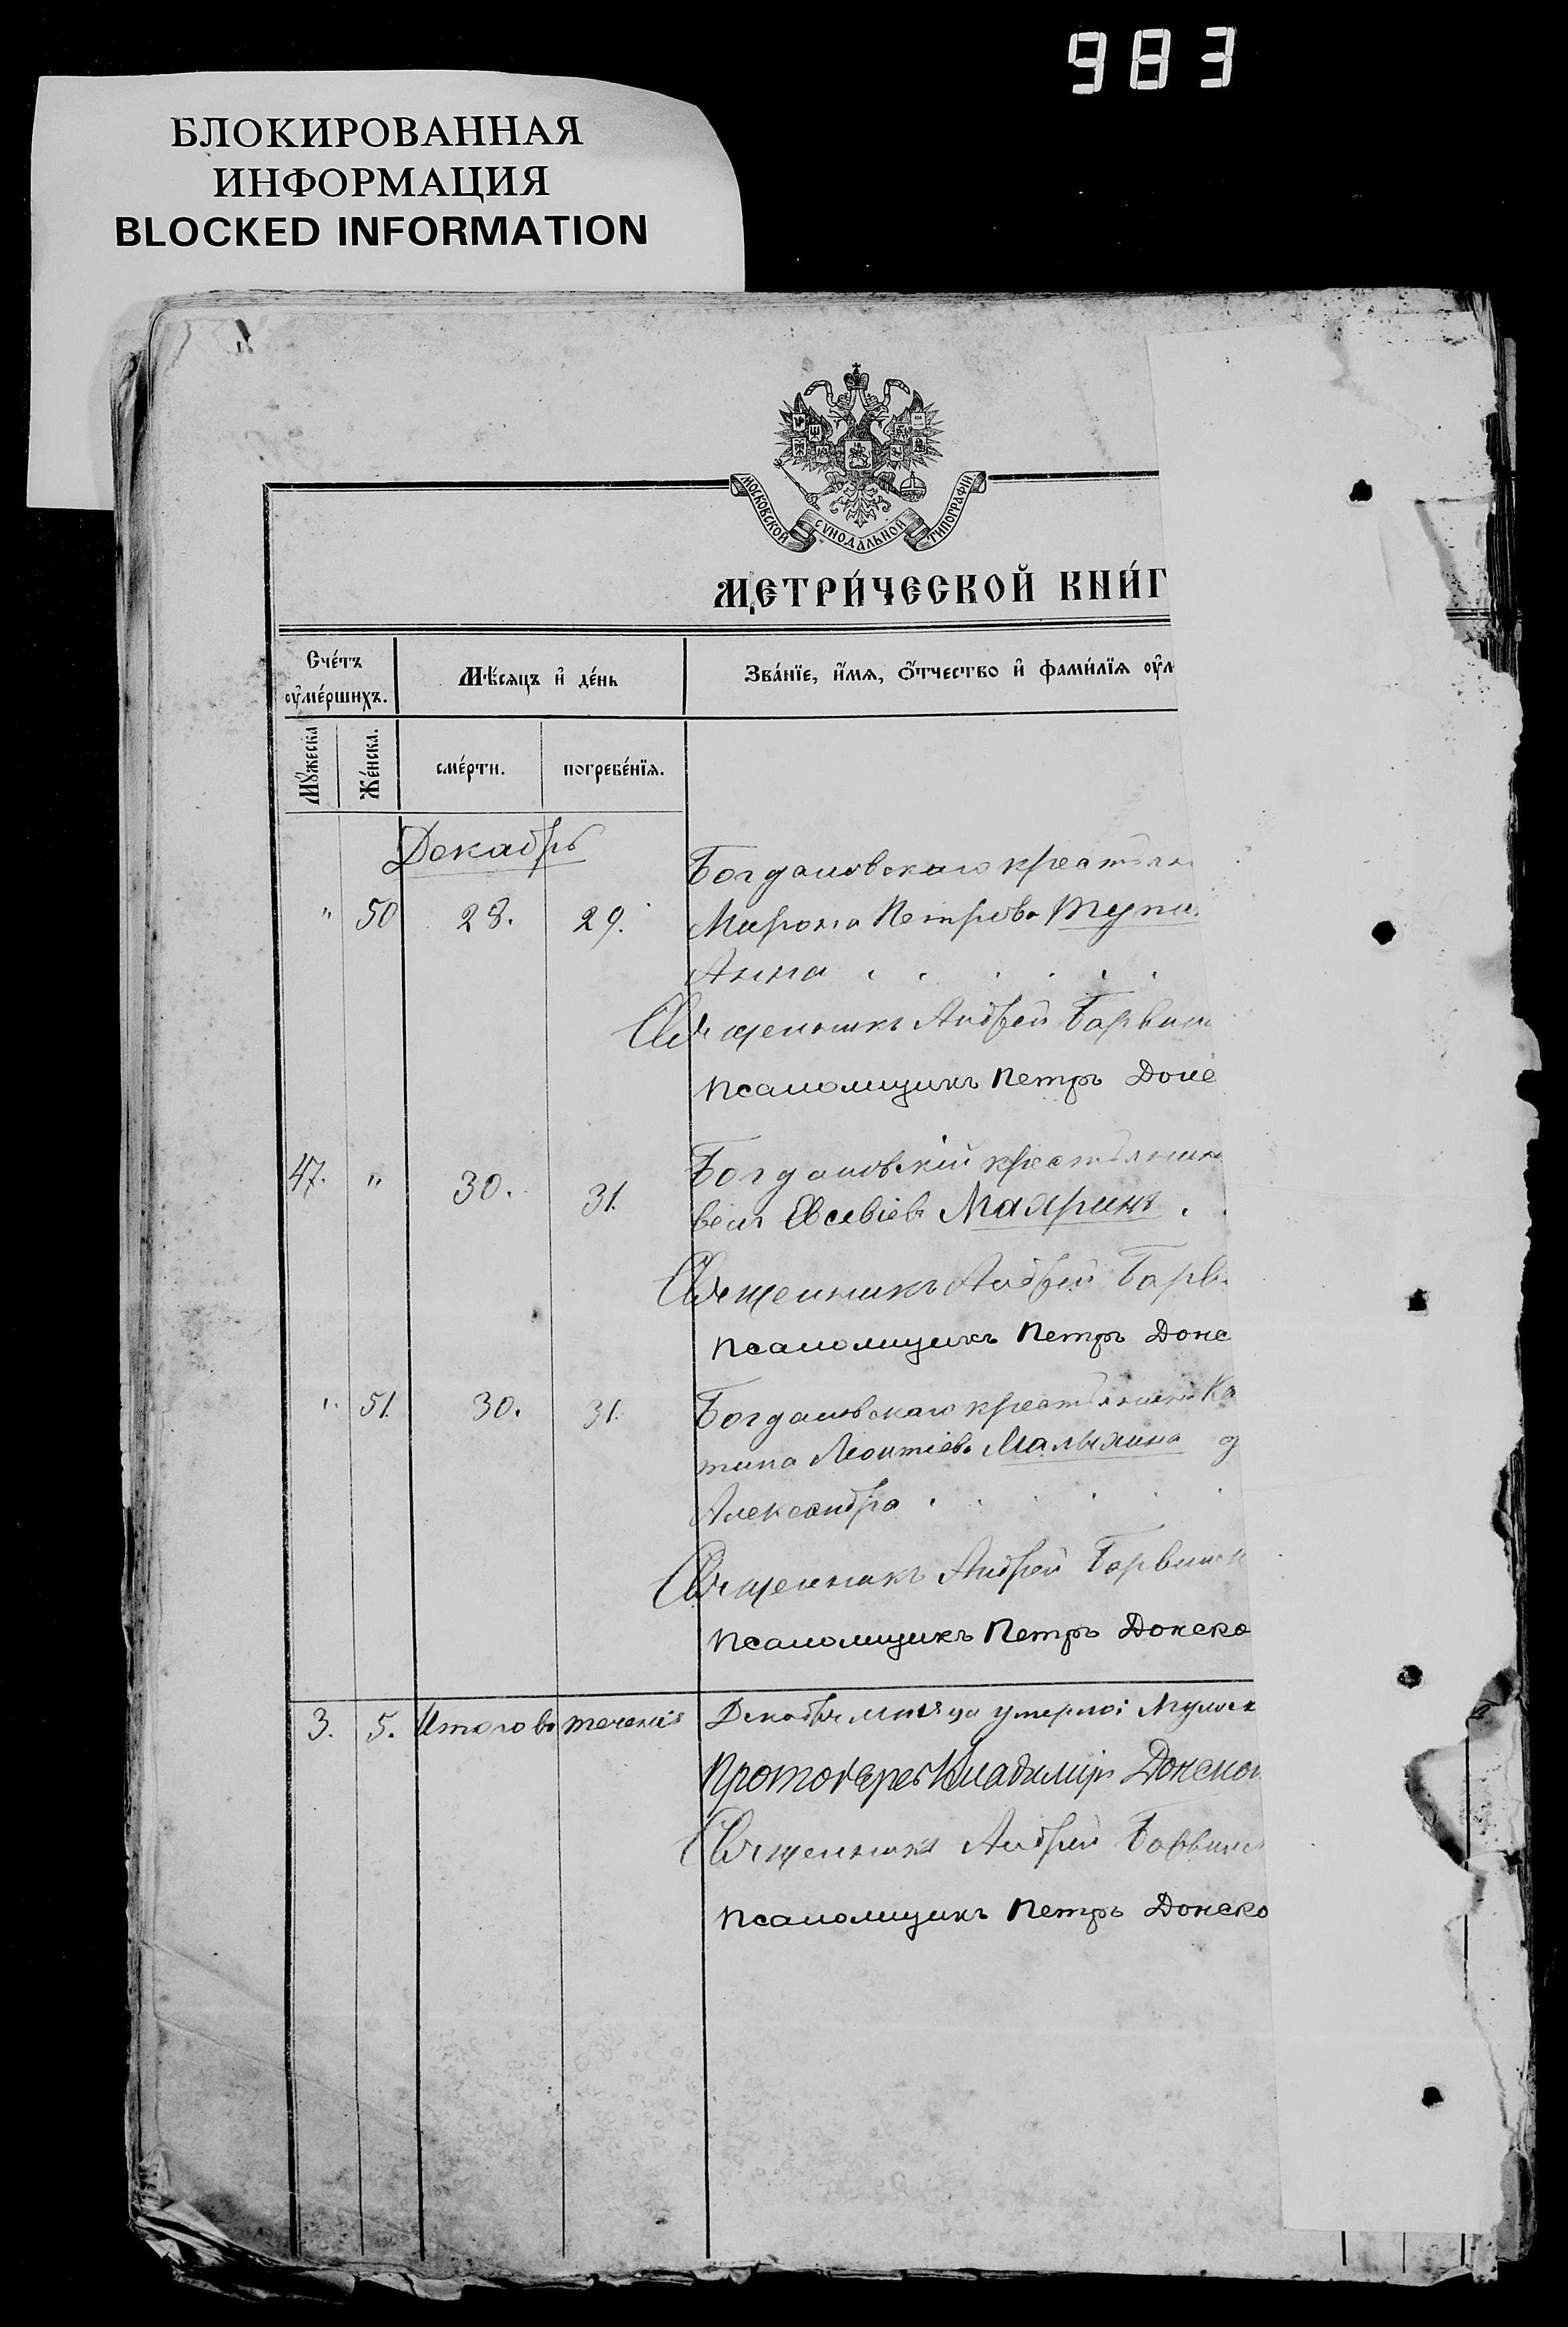 983
БЛОКИРОВАННАЯ
ИНФОРМАЦИЯ
BLOCKED INFORMATION
МОСКОВСКОЙ СѴНОДАЛЬНОЙ ТИПОГРАФІИ
МЕТРИ́ЧЕСКОЙ КНИ́Г
Счéтъ оумéршихъ.
Мѣ́сяцъ и дéнь
Звáнїе, и́мя, ѻ́тчество и фами́лїя оум
Мýжеска
Жéнска.
смéрти.
погребéнїя.
Декабрь
Богдановскаго крестьян
" 50 28. 29. Мирона Петрова Тупи
Анна
Священникъ Андрей Барвин
Псаломщикъ Петръ Донс
Богдановскій крестьянин
47. " 30. 31. велъ Евсевіевъ Маяринъ
Священникъ Андрей Барви
Псаломщикъ Петръ Донс
" 51. 30. 31. Богдановскаго крестьянина Ка
тина Леонтіева Малыхина д
Александра
Священникъ Андрей Барвинк
Псаломщикъ Петръ Донско
3. 5. Итого въ теченіе Декабря мѣсяца умерло: Мужск
Протоіерей Владиміръ Донской
Священникъ Андрей Барвинс
Псаломщикъ Петръ Донско